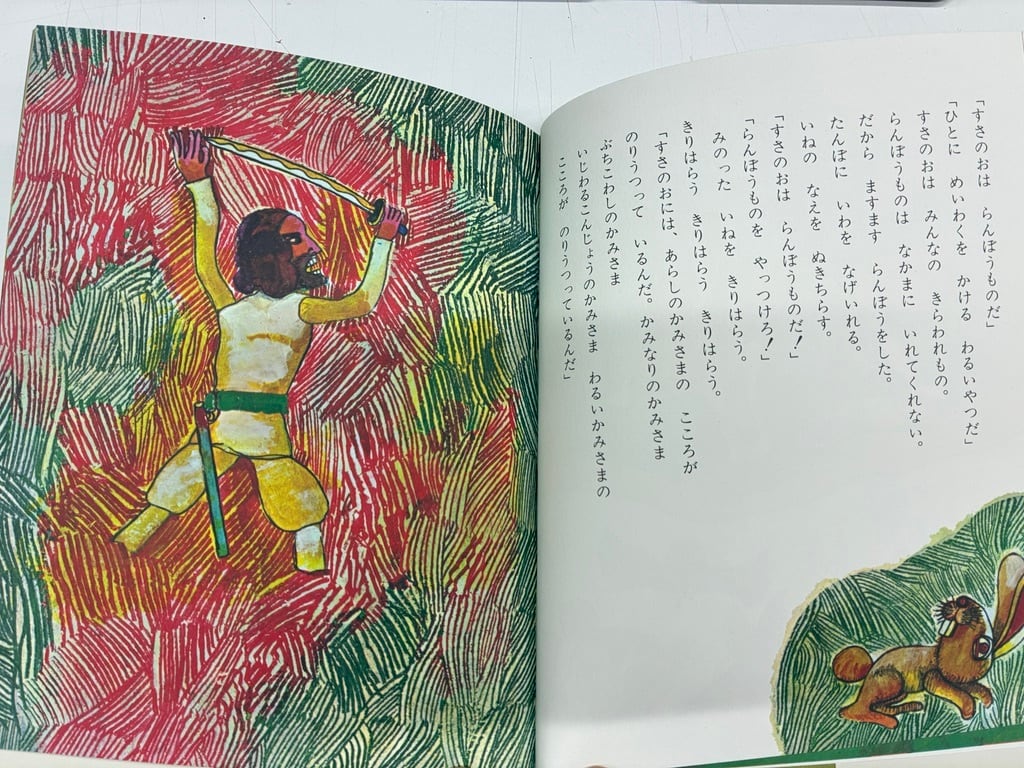 「すさのおは　らんぼうものだ」
「ひとに　めいわくを　かける　わるいやつだ」
すさのおは　みんなの　きらわれもの。
らんぼうものは　なかまに　いれてくれない。
だから　ますます　らんぼうをした。
たんぼに　いわを　なげいれる。
いねの　なえを　ぬきちらす。
「すさのおは　らんぼうものだ！」
「らんぼうものを　やっつけろ！」
みのった　いねを　きりはらう。
きりはらう　きりはらう　きりはらう。
「すさのおには、あらしのかみさまの　こころが
のりうつって　いるんだ。かみなりのかみさま
ぶちこわしのかみさま
いじわるこんじょうのかみさま　わるいかみさまの
こころが　のりうつっているんだ」